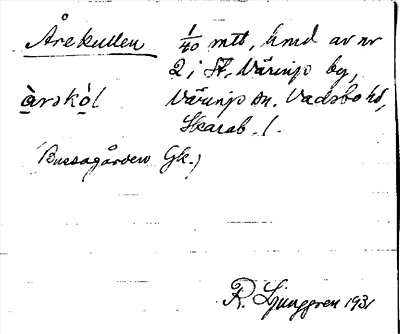 Årekullen 1/40 mtl, hmd av nr
2 i St. Väringe by,
àrskò̲l Väringe sn. Vadsbo hd,
Skarab. l.
(Bussagården Gk.)
R. Ljunggren 1931